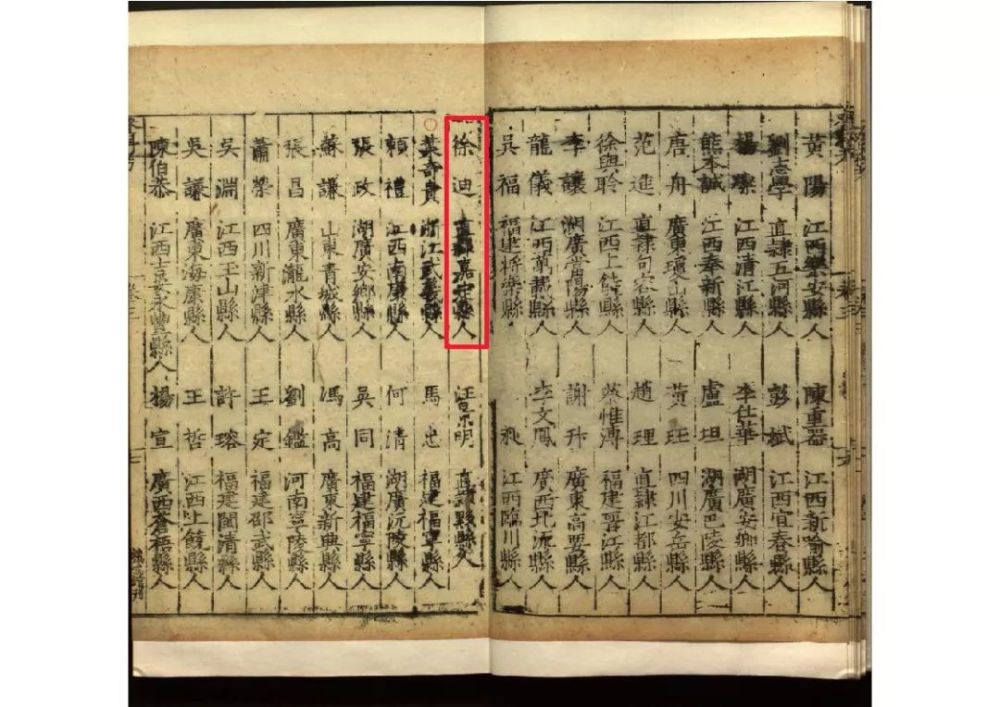 黃陽 江西樂安縣人
劉志學 直隸五河縣人
楊璨 江西清江縣人
熊本誠 江西奉新縣人
唐舟 廣東瓊山縣人
范進 直隸句容縣人
徐與聆 江西上饒縣人
李讓 湖廣當陽縣人
龍儀 江西萬載縣人
吳福 福建將樂縣人
陳重器 江西新喻縣人
彭斌 江西宜春縣人
李仕華 湖廣安鄉縣人
盧坦 湖廣巴陵縣人
黃玨 四川安岳縣人
趙理 直隸江都縣人
蔡惟溥 福建晉江縣人
謝升 廣東高要縣人
李文鳳 廣西北流縣人
江西臨川縣人
徐迪 直隸嘉定縣人
奇貴 浙江武義縣人
賴禮 江西南康縣人
張政 湖廣安鄉縣人
蘇謙 山東青城縣人
張昌 廣東瀧水縣人
蕭榮 四川新津縣人
吳淵 江西玉山縣人
吳謙 廣東海康縣人
陳伯恭 江西永豐縣人
汪景明 直隸黟縣人
馬忠 福建福寧縣人
何清 湖廣沅陵縣人
吳同 福建福寧縣人
馮高 廣東新興縣人
劉鑑 河南寧陵縣人
王定 福建邵武縣人
許瑢 福建閩清縣人
王哲 江西上饒縣人
楊宣 廣西蒼梧縣人